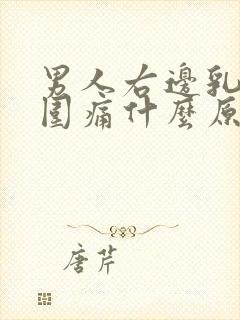 男人右邊乳
圍痛什麼原
唐芹